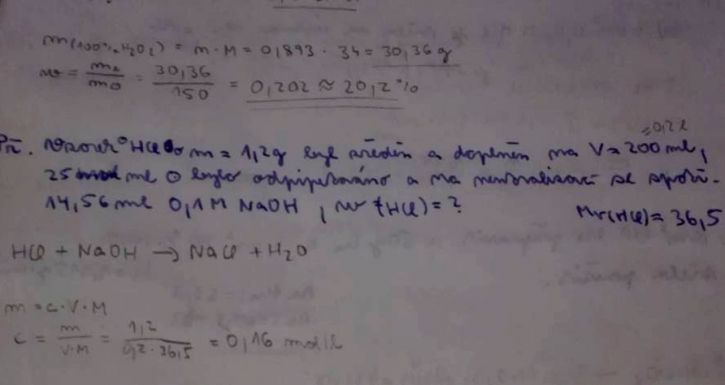 m(100% H2O2) = n · M = 0,893 · 34 = 30,36 g
w = mA/mO = 30,36/150 = 0,202 ≈ 20,2 %
= 0,2 l
Př. Vzorek HCl o m = 1,2g byl zředěn a doplněn na V = 200 ml,
25 ml bylo odpipetováno a na neutralizaci se spotř.
14,56 ml 0,1M NaOH, w (HCl) = ? Mr(HCl) = 36,5
HCl + NaOH → NaCl + H2O
m = c · V · M
c = m/V·M = 1,2/0,2·36,5 = 0,16 mol/l